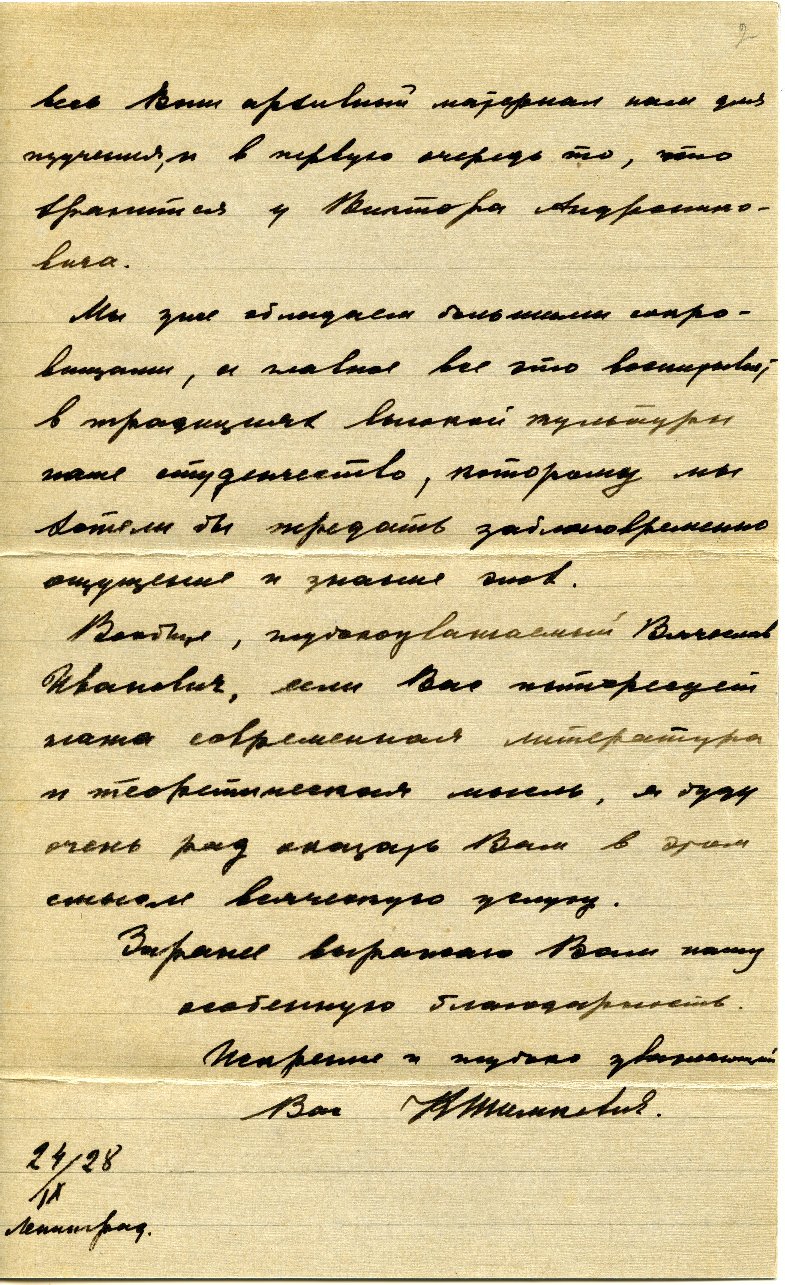 2
весь Ваш архивный материал нам для
изучения, и в первую очередь то, что
хранится у Виктора Андронико-
вича.
Мы уже обладаем большими сокро-
вищами, а главное все это воспитывает
в традициях высокой культуры
наше студенчество, которому мы
хотели бы передать заблаговременно
ощущение и знание эпох.
Вообще, глубокоуважаемый Вячеслав
Иванович, если Вас интересует
наша современная литература
и теоретическая мысль, я буду
очень рад оказать Вам в этом
смысле всяческую услугу.
Заранее выражаю Вам нашу
особенную благодарность.
Искренне и глубоко уважающий
Вас К Шимкевич.
24/28
IX
Ленинград.